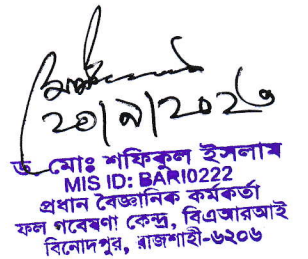 ২০/৯/২০২৩
ড. মোঃ শফিকুল ইসলাম
MIS ID: BARI0222
প্রধান বৈজ্ঞানিক কর্মকর্তা
ফল গবেষণা কেন্দ্র, বিএআরআই
বিনোদপুর, রাজশাহী-৬২০৬